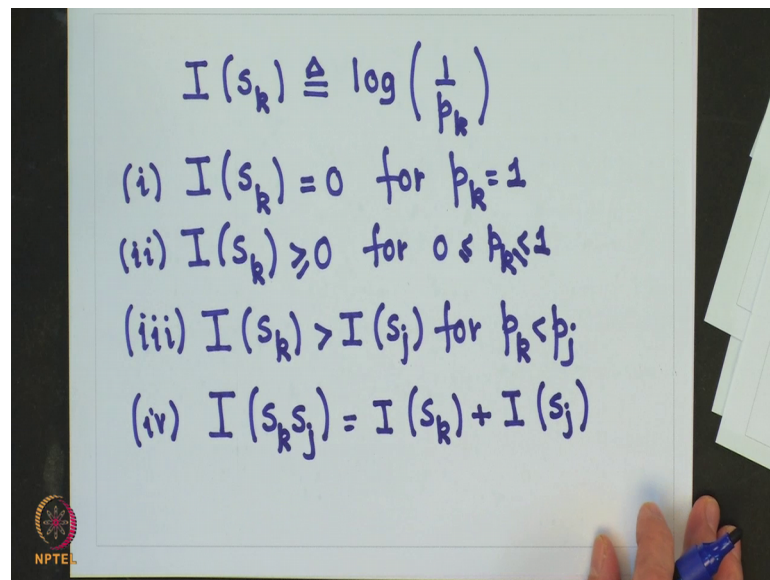 I(s_k) ≜ log(1/p_k)
(i) I(s_k) = 0 for p_k = 1
(ii) I(s_k) ⩾ 0 for 0 ⩽ p_k ⩽ 1
(iii) I(s_k) > I(s_j) for p_k < p_j
(iv) I(s_k s_j) = I(s_k) + I(s_j)
NPTEL